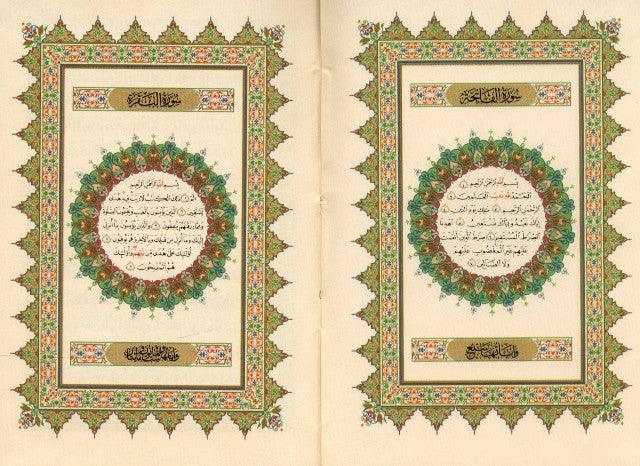 سورة الفاتحة
بسم الله الرحمن الرحيم ١
الحمد لله رب العلمين ٢
الرحمن الرحيم ٣ ملك يوم الدين ٤
إياك نعبد وإياك نستعين ٥ اهدنا
الصرط المستقيم ٦ صرط الذين أنعمت
عليهم غير المغضوب عليهم
ولا الضالين ٧
وآياتها سبع
سورة البقرة
بسم الله الرحمن الرحيم
الم ١ ذلك الكتب لا ريب فيه هدى
للمتقين ٢ الذين يؤمنون بالغيب ويقيمون الصلوة
ومما رزقنهم ينفقون ٣ والذين يؤمنون بما أنزل
إليك وما أنزل من قبلك وبالأخرة هم يوقنون ٤
أولئك على هدى من ربهم وأولئك
هم المفلحون ٥